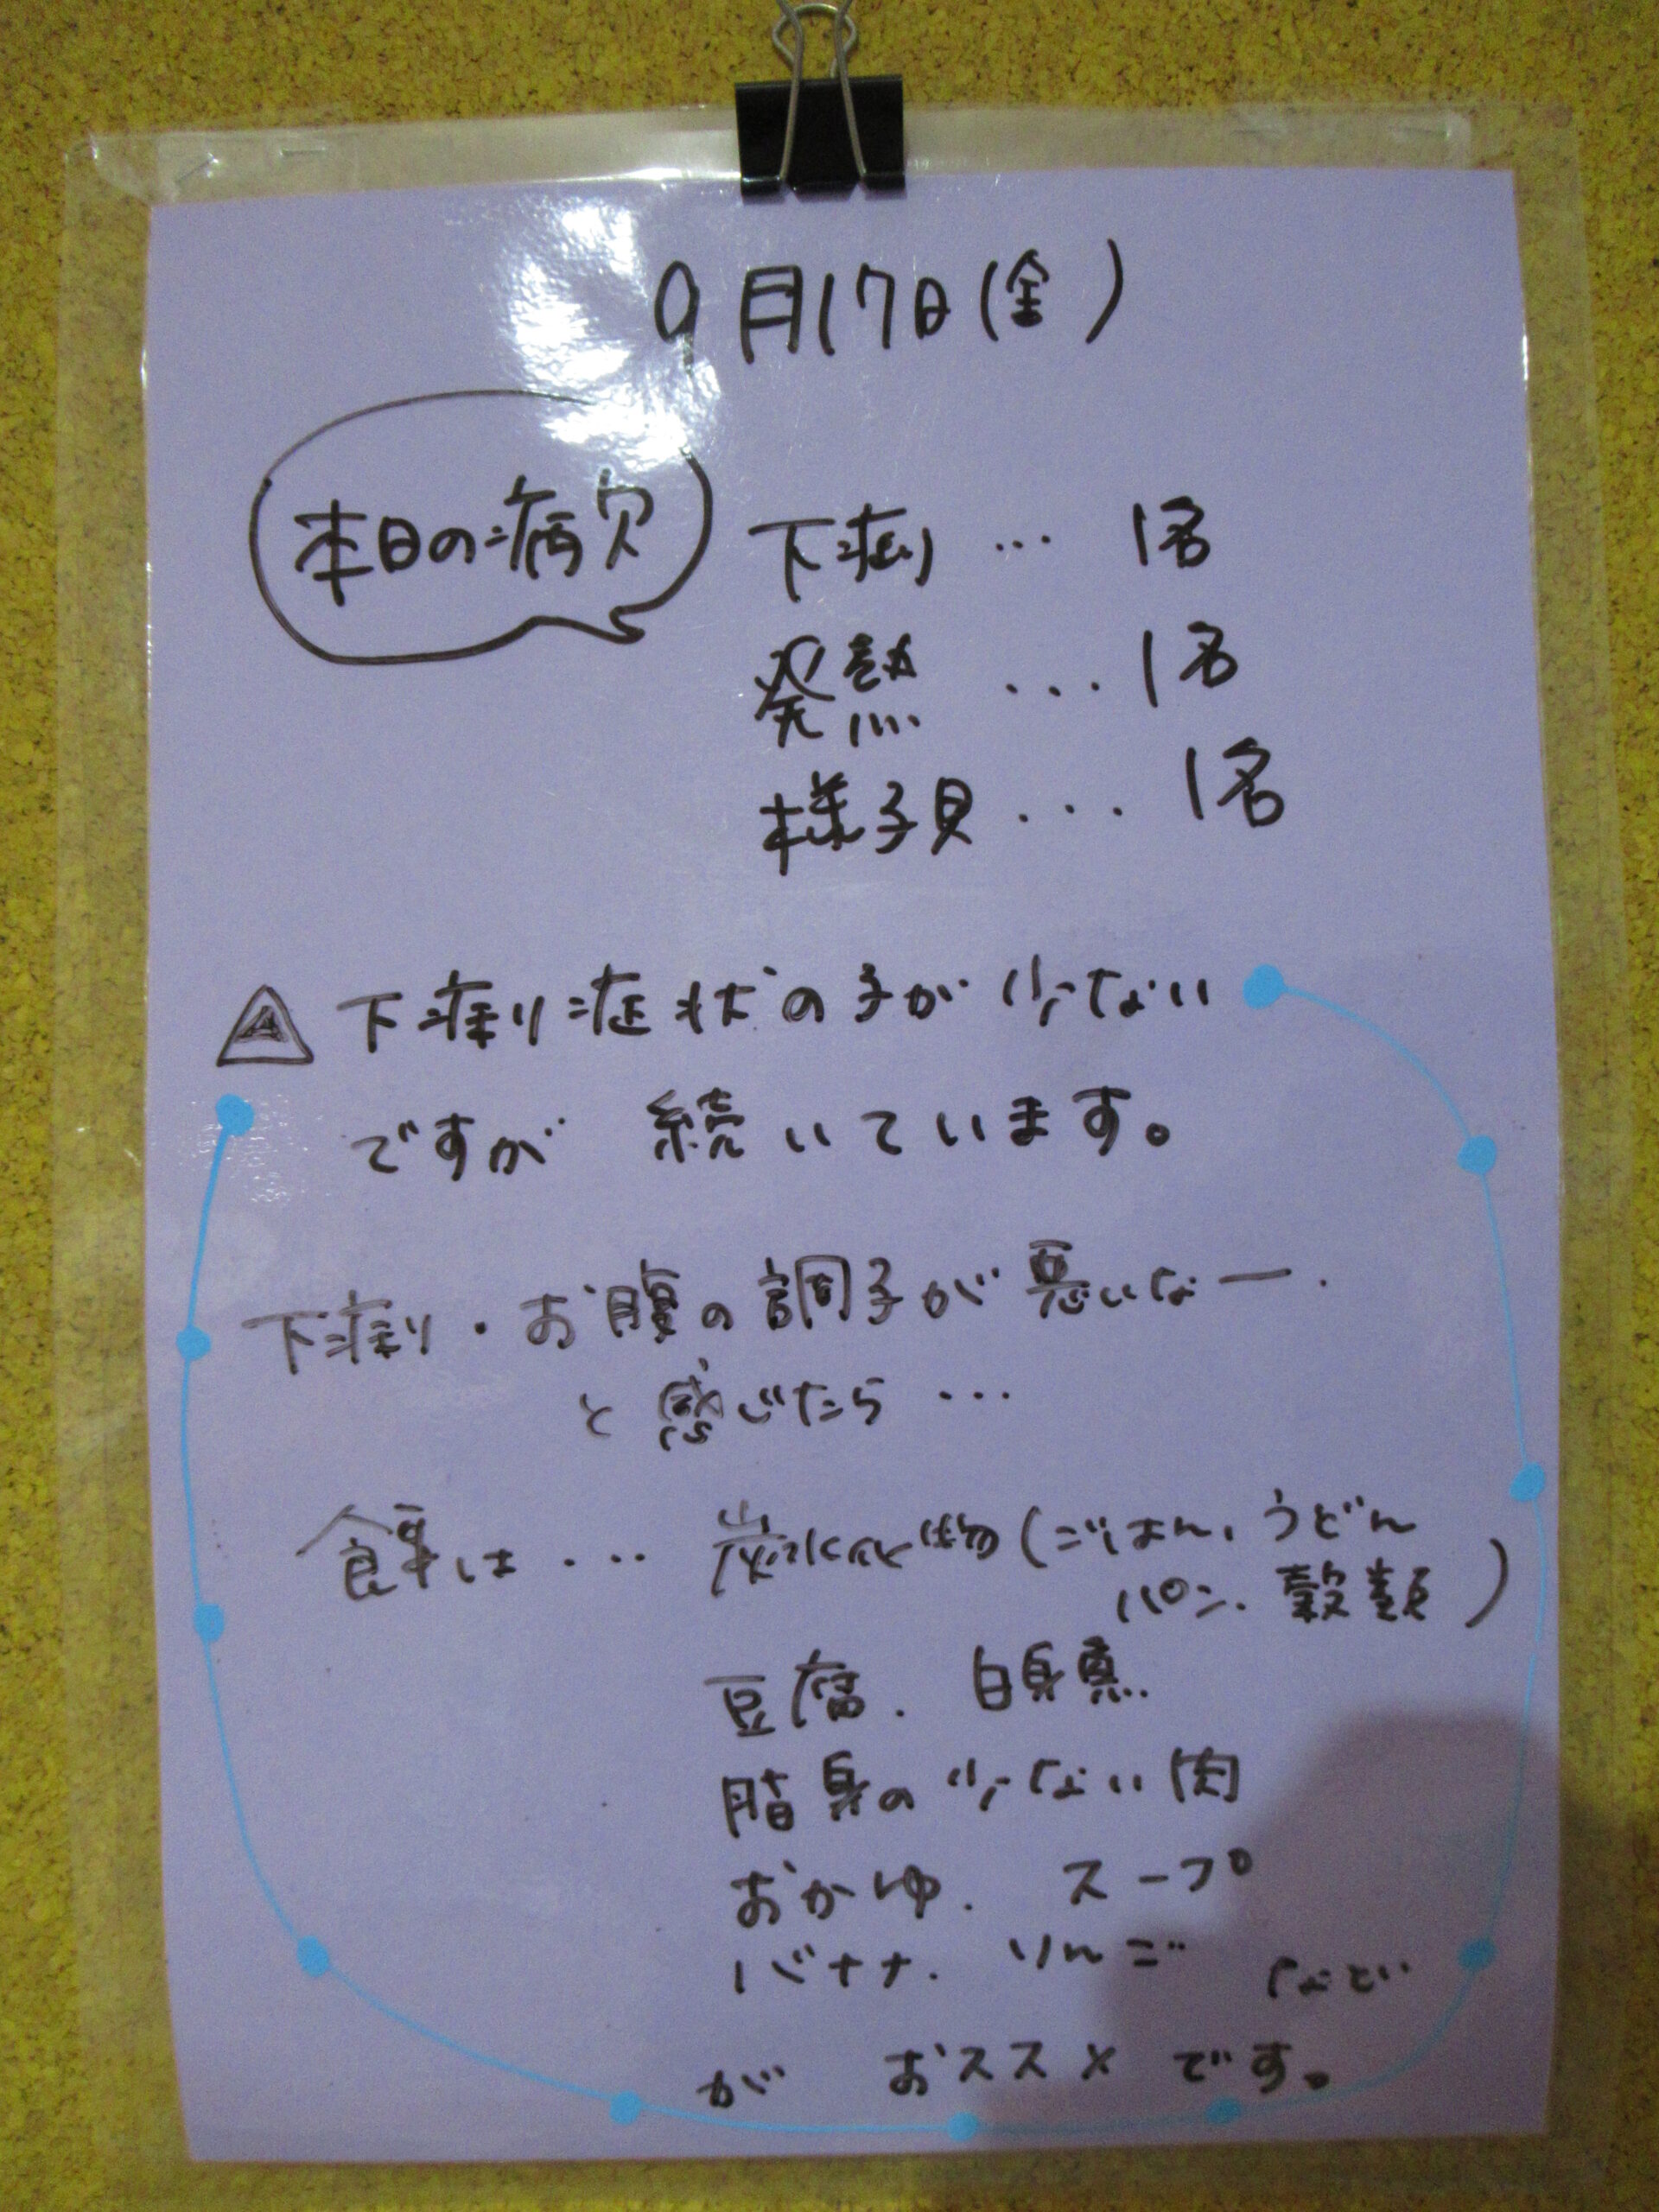 9月17日(金)
本日の病欠
下痢 … 1名
発熱 … 1名
様子見 … 1名
下痢り症状の子が少ない
ですが 続いています。
下痢り・お腹の調子が悪いなー.
と感じたら …
食事は … 炭水化物(ごはん、うどん
パン、穀類)
豆腐. 白身魚.
脂身の少ない肉
おかゆ. スープ
バナナ. りんご など
が おススメです。